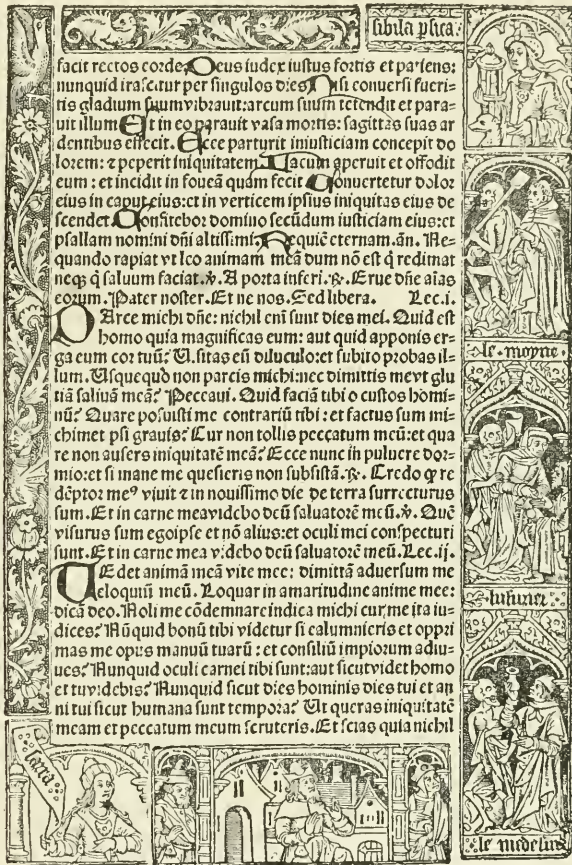 sibila psica:
facit rectos corde Deus iudex iustus fortis et patiens:
nunquid irascitur per singulos dies Nisi conuersi fueri-
tis gladium suum vibrauit: arcum suum tetendit et para-
uit illum Et in eo parauit vasa mortis: sagittas suas ar
dentibus effecit. Ecce parturit iniusticiam concepit do
lorem: ⁊ peperit iniquitatem Lacum aperuit et offodit
eum: et incidit in foueã quam fecit Conuertetur dolor
eius in caput eius: et in verticem ipsius iniquitas eius de
scendet Confitebor domino secũdum iusticiam eius: et
psallam nomini dñi altissimi Requiẽ eternam. añ. Ne-
quando rapiat vt leo animam meã dum nõ est q̃ redimat
neq̃ q̃ saluum faciat. ℣. A porta inferi. ℟. Erue dñe aĩas
eorum. Pater noster. Et ne nos. Sed libera. Lec. i.
PArce michi dñe: nichil eni sunt dies mei. Quid est
homo quia magnificas eum: aut quid apponis er-
ga eum cor tuũ? Uisitas eũ diluculo: et subito probas il-
lum. Usquequo non parcis michi: nec dimittis me vt glu
tiã saliuã meã? Peccaui. Quid faciã tibi o custos homi-
nũ? Quare posuisti me contrariũ tibi: et factus sum mi-
chimet ipsi grauis? Cur non tollis peccatum meũ: et qua
re non aufers iniquitatẽ meã? Ecce nunc in puluere dor-
mio: et si mane me quesieris non subsistã. ℟. Credo q̃ re
dẽptor meꝰ viuit ⁊ in nouissimo die de terra surrecturus
sum. Et in carne mea videbo deũ saluatorẽ meũ. ℣. Quẽ
visurus sum ego ipse et nõ alius: et oculi mei conspecturi
sunt. Et in carne mea videbo deũ saluatorẽ meũ. Lec. ij.
TEdet animã meã vite mee: dimittã aduersum me
eloquiũ meũ. Loquar in amaritudine anime mee:
dicã deo. Noli me cõdemnare indica michi cur me ita iu-
dices? Nũquid bonũ tibi videtur si calumnieris et oppri
mas me opus manuũ tuarũ: et consiliũ impiorum adiu-
ues? Nunquid oculi carnei tibi sunt: aut sicut videt homo
et tu videbis? Nunquid sicut dies hominis dies tui et an
ni tui sicut humana sunt tempora? Ut queras iniquitatẽ
meam et peccatum meum scruteris. Et scias quia nichil
le moyne
lusurier
le medesin